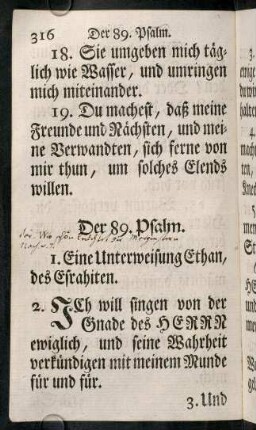 316 Der 89. Psalm.
18. Sie umgeben mich täg-
lich wie Wasser, und umringen
mich miteinander.
19. Du machest, daß meine
Freunde und Nächsten, und mei-
ne Verwandten, sich ferne von
mir thun, um solches Elends
willen.
Der 89. Psalm.
1. Eine Unterweisung Ethan,
des Esrahiten.
2. JCh will singen von der
Gnade des HERRN
ewiglich, und seine Wahrheit
verkündigen mit meinem Munde
für und für.
3. Und